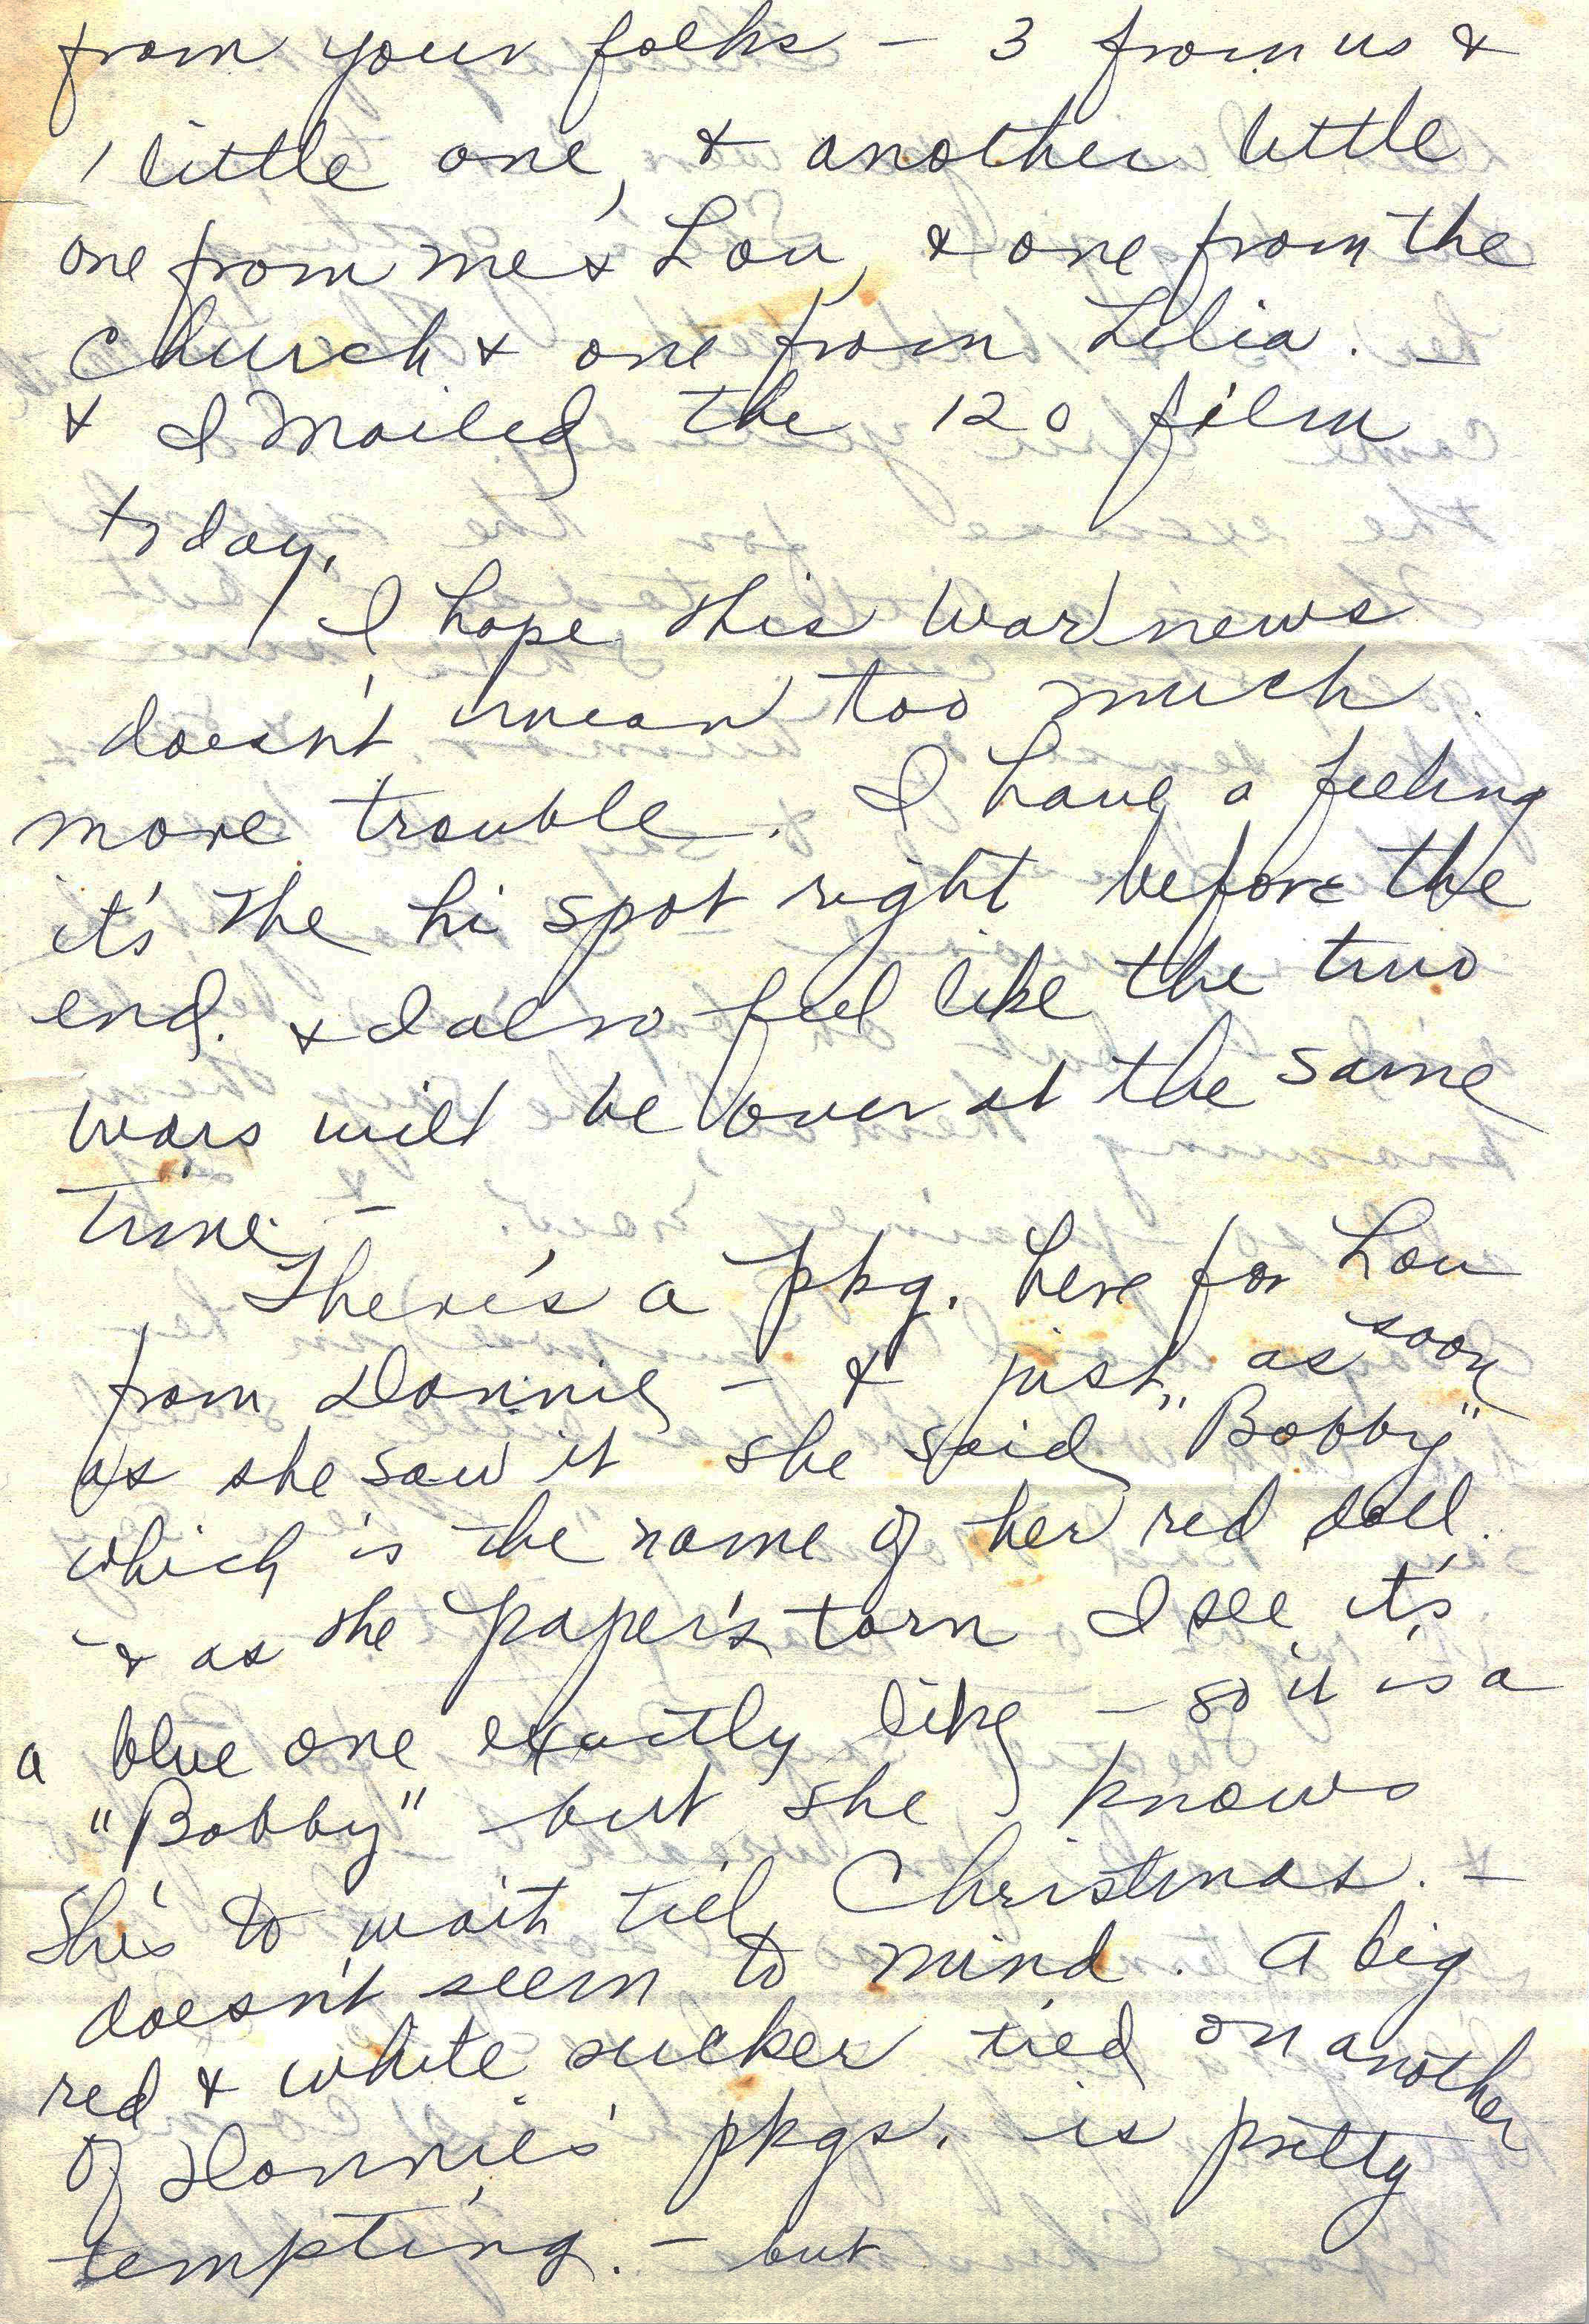 from your folks – 3 from us &
1 little one, & another little
one from me & Lou, & one from the
Church & one from Lelia. –
& I mailed the 120 film
today.
I hope this war news
doesn't mean too much
more trouble. I have a feeling
it's the hi spot right before the
end. & I also feel like the two
wars will be over at the same
time. –
There's a pkg. here for Lou
from Donnie – & just as soon
as she saw it she said "Bobby"
which is the name of her red doll.
– & as the paper's torn I see it's
a blue one exactly like – so it is a
"Bobby" but she knows
she's to wait til Christmas. –
doesn't seem to mind. A big
red & white sucker tied on another
of Donnie's pkgs. is pretty
tempting. – but